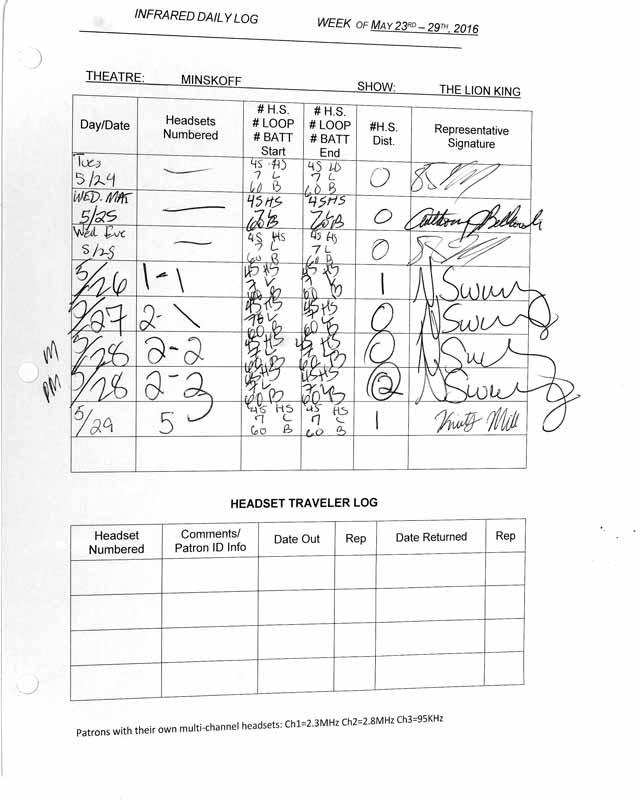 INFRARED DAILY LOG WEEK OF MAY 23RD – 29TH, 2016
THEATRE: MINSKOFF SHOW: THE LION KING
Day/Date Headsets Numbered # H.S. # LOOP # BATT Start # H.S. # LOOP # BATT End #H.S. Dist. Representative Signature
Tues 5/24 — 45 HS 7 L 60 B 45 HS 7 L 60 B 0
WED. MAT 5/25 — 45HS 7L 60B 45HS 7L 60B 0 Anthony
Wed Eve 5/25 — 45 HS 7 L 60 B 45 HS 7 L 60 B 0
5/26 1-1 45 HS 7 L 60 B 45 HS 7 L 60 B 1
5/27 2-1 45 HS 7 L 60 B 45 HS 7 L 60 B 0
M 5/28 2-2 45 HS 7 L 60 B 45 HS 7 L 60 B 0
PM 5/28 2-3 45 HS 7 L 60 B 45 HS 7 L 60 B 2
5/29 5 45 HS 7 L 60 B 45 HS 7 L 60 B 1
HEADSET TRAVELER LOG
Headset Numbered Comments/ Patron ID Info Date Out Rep Date Returned Rep
Patrons with their own multi-channel headsets: Ch1=2.3MHz Ch2=2.8MHz Ch3=95KHz